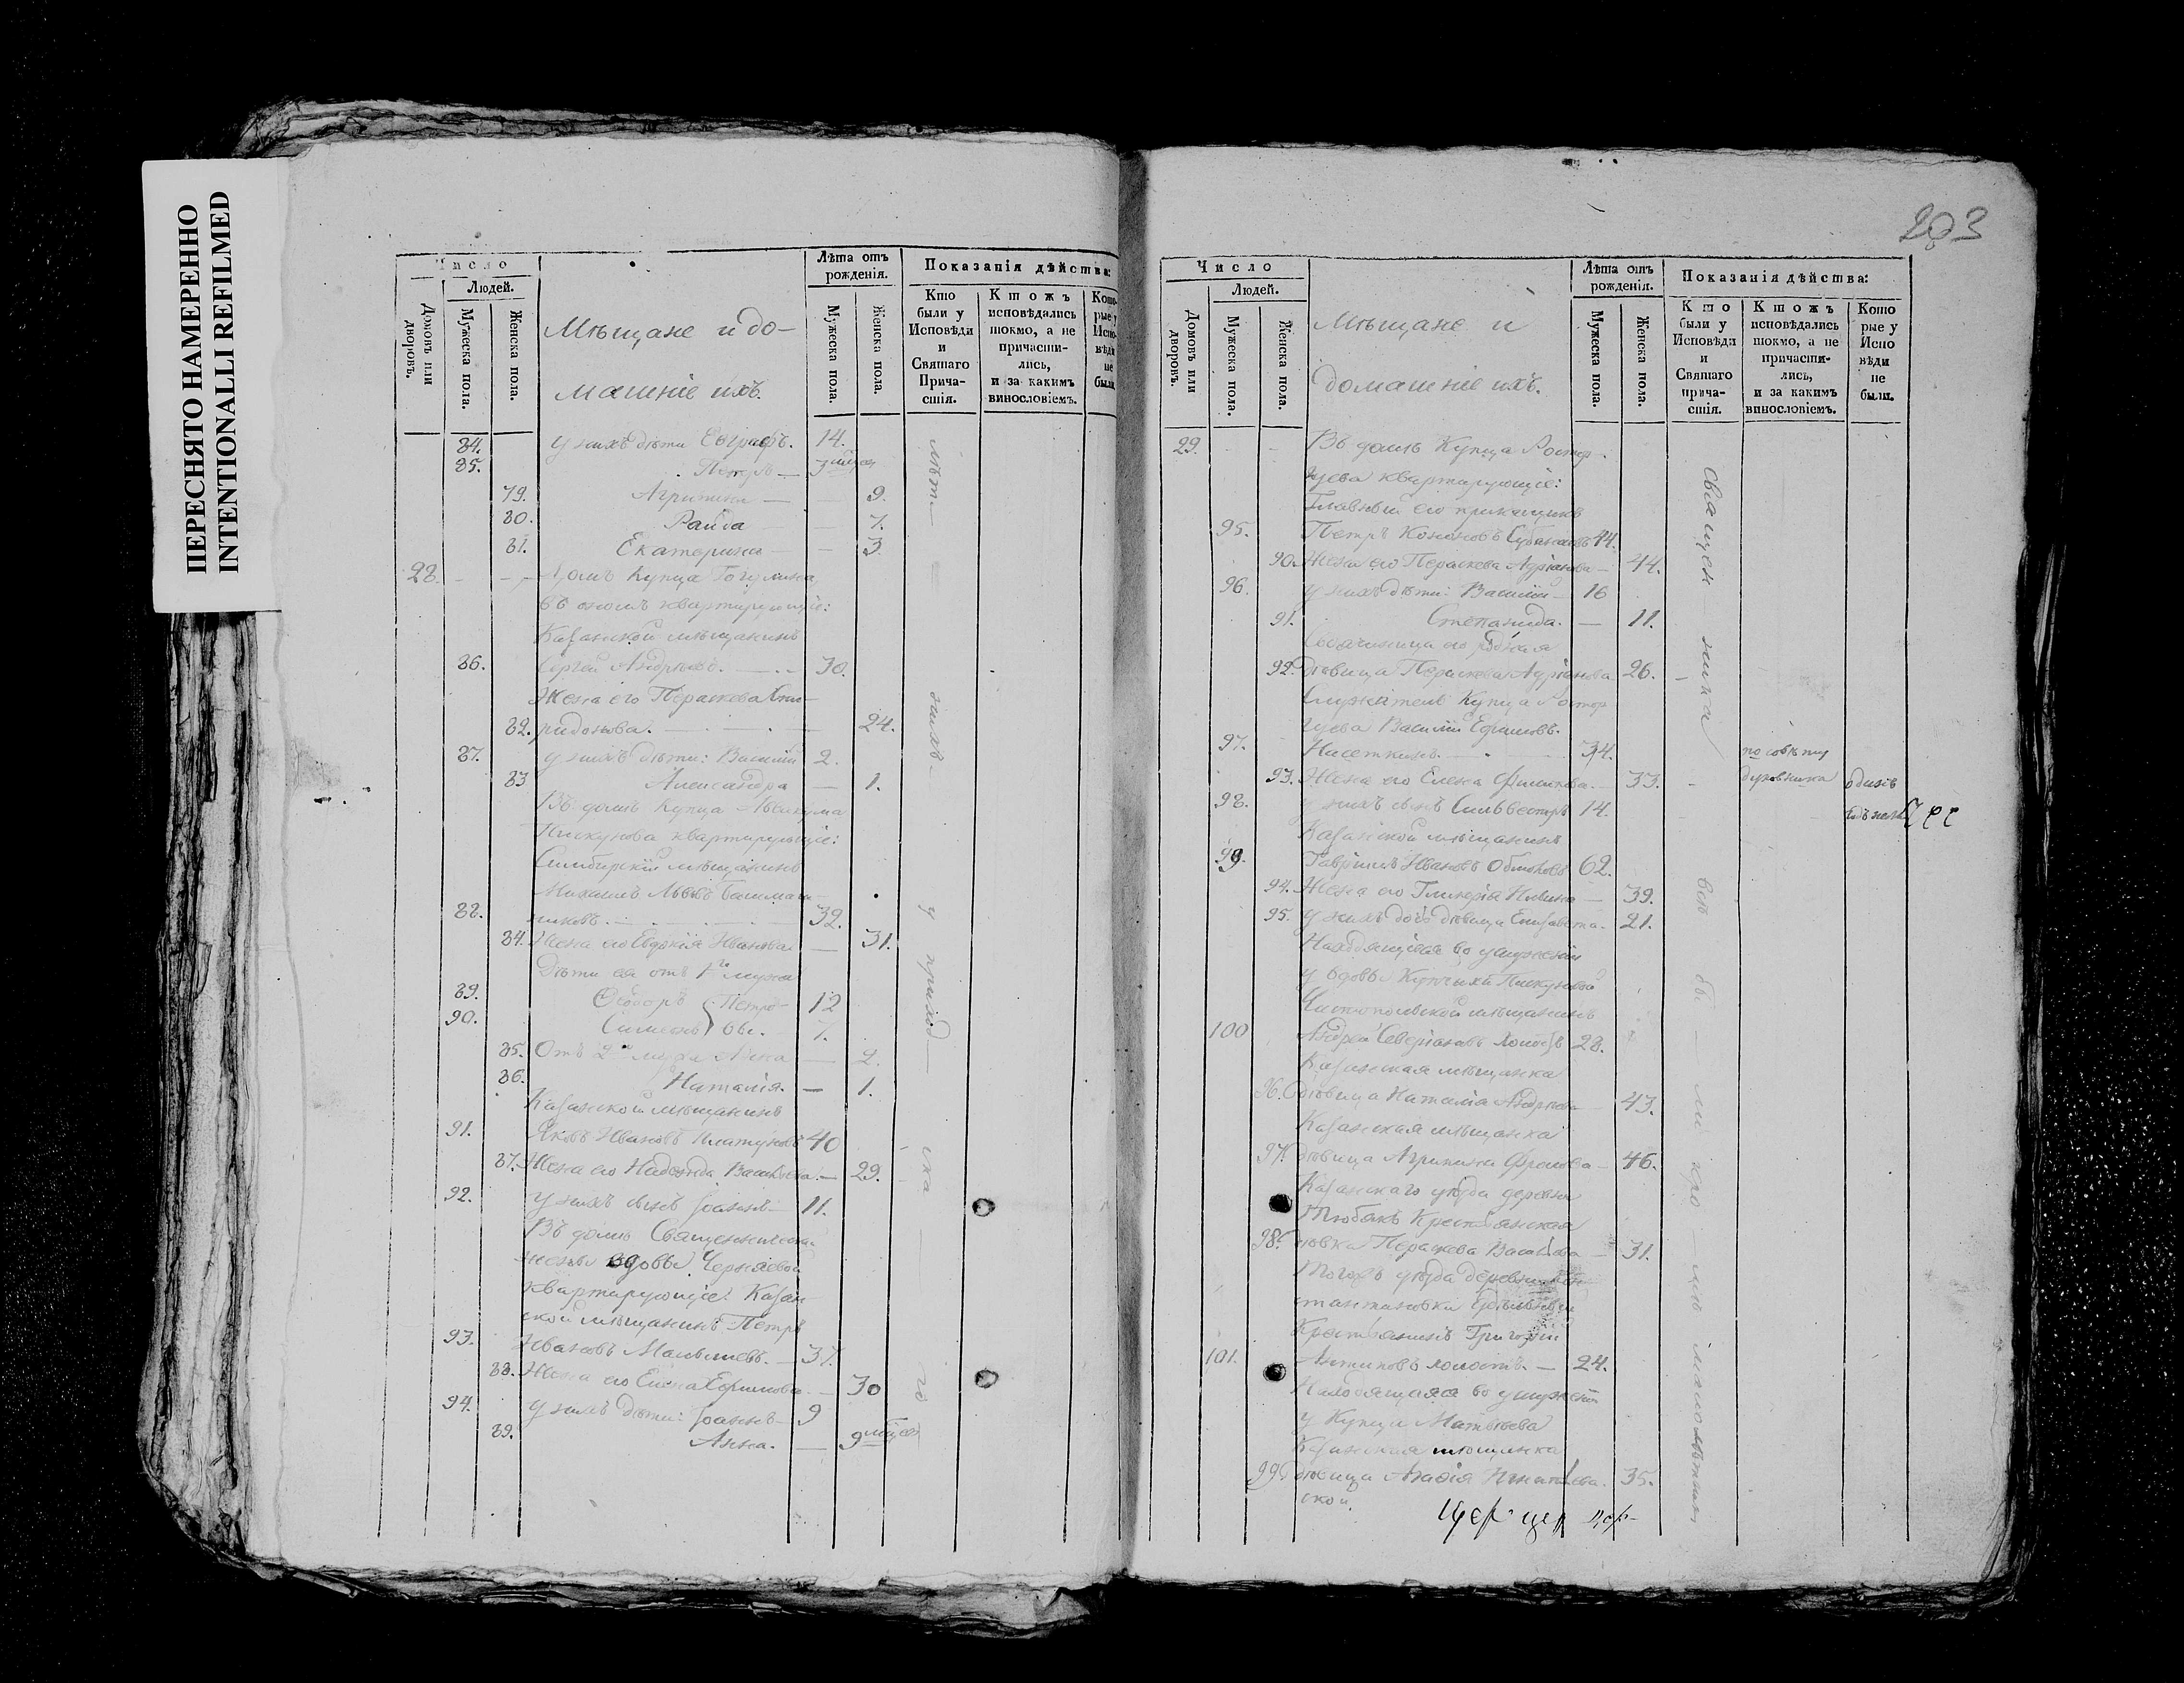 ПЕРЕСНЯТО НАМЕРЕННО
INTENTIONALLI REFILMED
Число
Людей.
Домовъ или дворовъ.
Мужеска пола.
Женска пола.
Мѣщане и до-
машніе ихъ.
Лѣта отъ рожденія.
Мужеска пола.
Женска пола.
Показанія дѣйства:
Кто были у Исповѣди и Святаго Прича-стія.
Ктожъ исповѣдались токмо, а не причасти-лись, и за какимъ винословіемъ.
Кото-рые у Испо-вѣди не были.
84. у нихъ дѣти Евграфъ. 14.
85. Петръ — 3 мѣсяц
79. Агрипина — — 9.
80. Раида — 7.
81. Екатерина — — 3.
28. Домъ Купца
въ ономъ квартирующіе:
Казанской мѣщанинъ
86. Сергей Андреевъ. 30.
Жена его Параскева Спи-
82. ридонова. 24.
87. у нихъ дѣти: Василій 2.
83 Александра — 1.
Въ домѣ Купца
Пискунова квартирующіе:
Симбирскій мѣщанинъ
Михаилъ Львовъ Башмаш-
88. никовъ. 32.
84. Жена его Евдокія Иванова — 31.
Дѣти ея отъ 1го мужа
89. Ѳеодоръ Петро- 12
90. Симеонъ вы. 7.
85. Отъ 2го мужа Анна — 2.
86. Наталія. — 1.
Казанской мѣщанинъ
91. Яковъ Ивановъ Платуновъ 40
87. Жена его Надежда Васильева. — 29.
92. у нихъ сынъ Іоаннъ — 11.
Въ домѣ Священнической
жены вдовы Черняевой
квартирующіе: Казан-
ской мѣщанинъ Петръ
93. Ивановъ Малышевъ. — 37.
88. Жена его Елена Ефимова. — 30
94. у нихъ дѣти: Іоаннъ — 9
89. Анна. — 9 мѣсяц
лѣт—
нихъ—
у приход—
ска—
го
203
Число
Людей.
Домовъ или дворовъ.
Мужеска пола.
Женска пола.
Мѣщане и
домашніе ихъ.
Лѣта отъ рожденія.
Мужеска пола.
Женска пола.
Показанія дѣйства:
Кто были у Исповѣди и Святаго прича-стія.
Ктожъ исповѣдались токмо, а не причасти-лись, и за какимъ винословіемъ.
Кото рые у Испо вѣди не были.
29. Въ домѣ Купца Растор-
гуева квартирующіе:
Главный его прикащикъ
95. Петръ Кононовъ 44.
90. Жена его Параскева Адріанова — 44.
96. у нихъ дѣти: Василій — 16
91. Степанида. — 11.
92. дѣвица Параскева Адріанова 26.
Служитель Купца Растор-
гуева Василій Ефимовъ.
97. Насеткинъ. 34.
93. Жена его Елена Филипова. — 33.
98. у нихъ сынъ Сильвестръ 14.
Казанской мѣщанинъ
99. Гавріилъ Ивановъ 62.
94. Жена его Гликерія — 39.
95. у нихъ дочь дѣвица Елисавета. 21.
Находящіеся во услуженіи
у вдовы Купчихи Пискуновой
Чистопольской мѣщанинъ
100 Андрей Северіановъ холостъ 28.
Казанская мѣщанка
96. дѣвица Наталія Андреева — 43.
Казанская мѣщанка
97. дѣвица Агрипина Фролова — 46.
Казанскаго уѣзда деревни
Тюбякъ Крестьянская
98. дѣвка Параскева Васильева — 31.
Тогожъ уѣзда деревни
Крестьянинъ Григорій
101. Антиповъ холостъ. — 24.
Находящаяся во услуженіи
у Купца Матвѣева
Казанская мѣщанка
99. дѣвица Агафія Игнатьева. 35.
Священ—
ника
всѣ
бы—
ли
кро—
мѣ
малолѣтнихъ
по совѣту
духовника